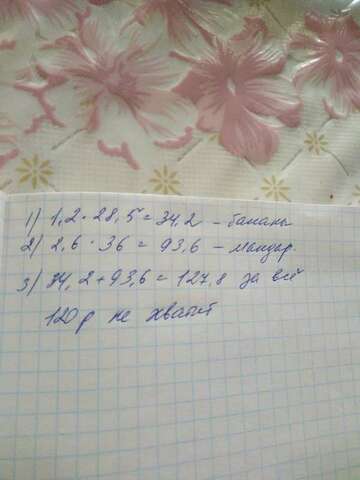 1) 1,2 · 28,5 = 34,2 – бананы
2) 2,6 · 36 = 93,6 – мандар.
3) 34,2 + 93,6 = 127,8 за всё
120 р не хватит